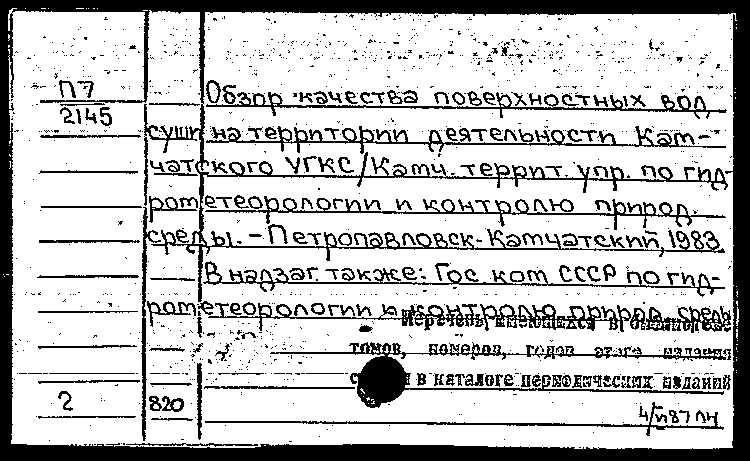 П7
2145
Обзор качества поверхностных вод
суши на территории деятельности Кам-
чатского УГКС/Камч. террит. упр. по гид-
рометеорологии и контролю природ.
среды. – Петропавловск-Камчатский, 1983
В надзаг. также: Гос. ком СССР по гид-
рометеорологии и контролю природ. среды
Перечень имеющихся в библиотеке
томов, номеров, годов этого издания
в каталоге периодических изданий
2
820